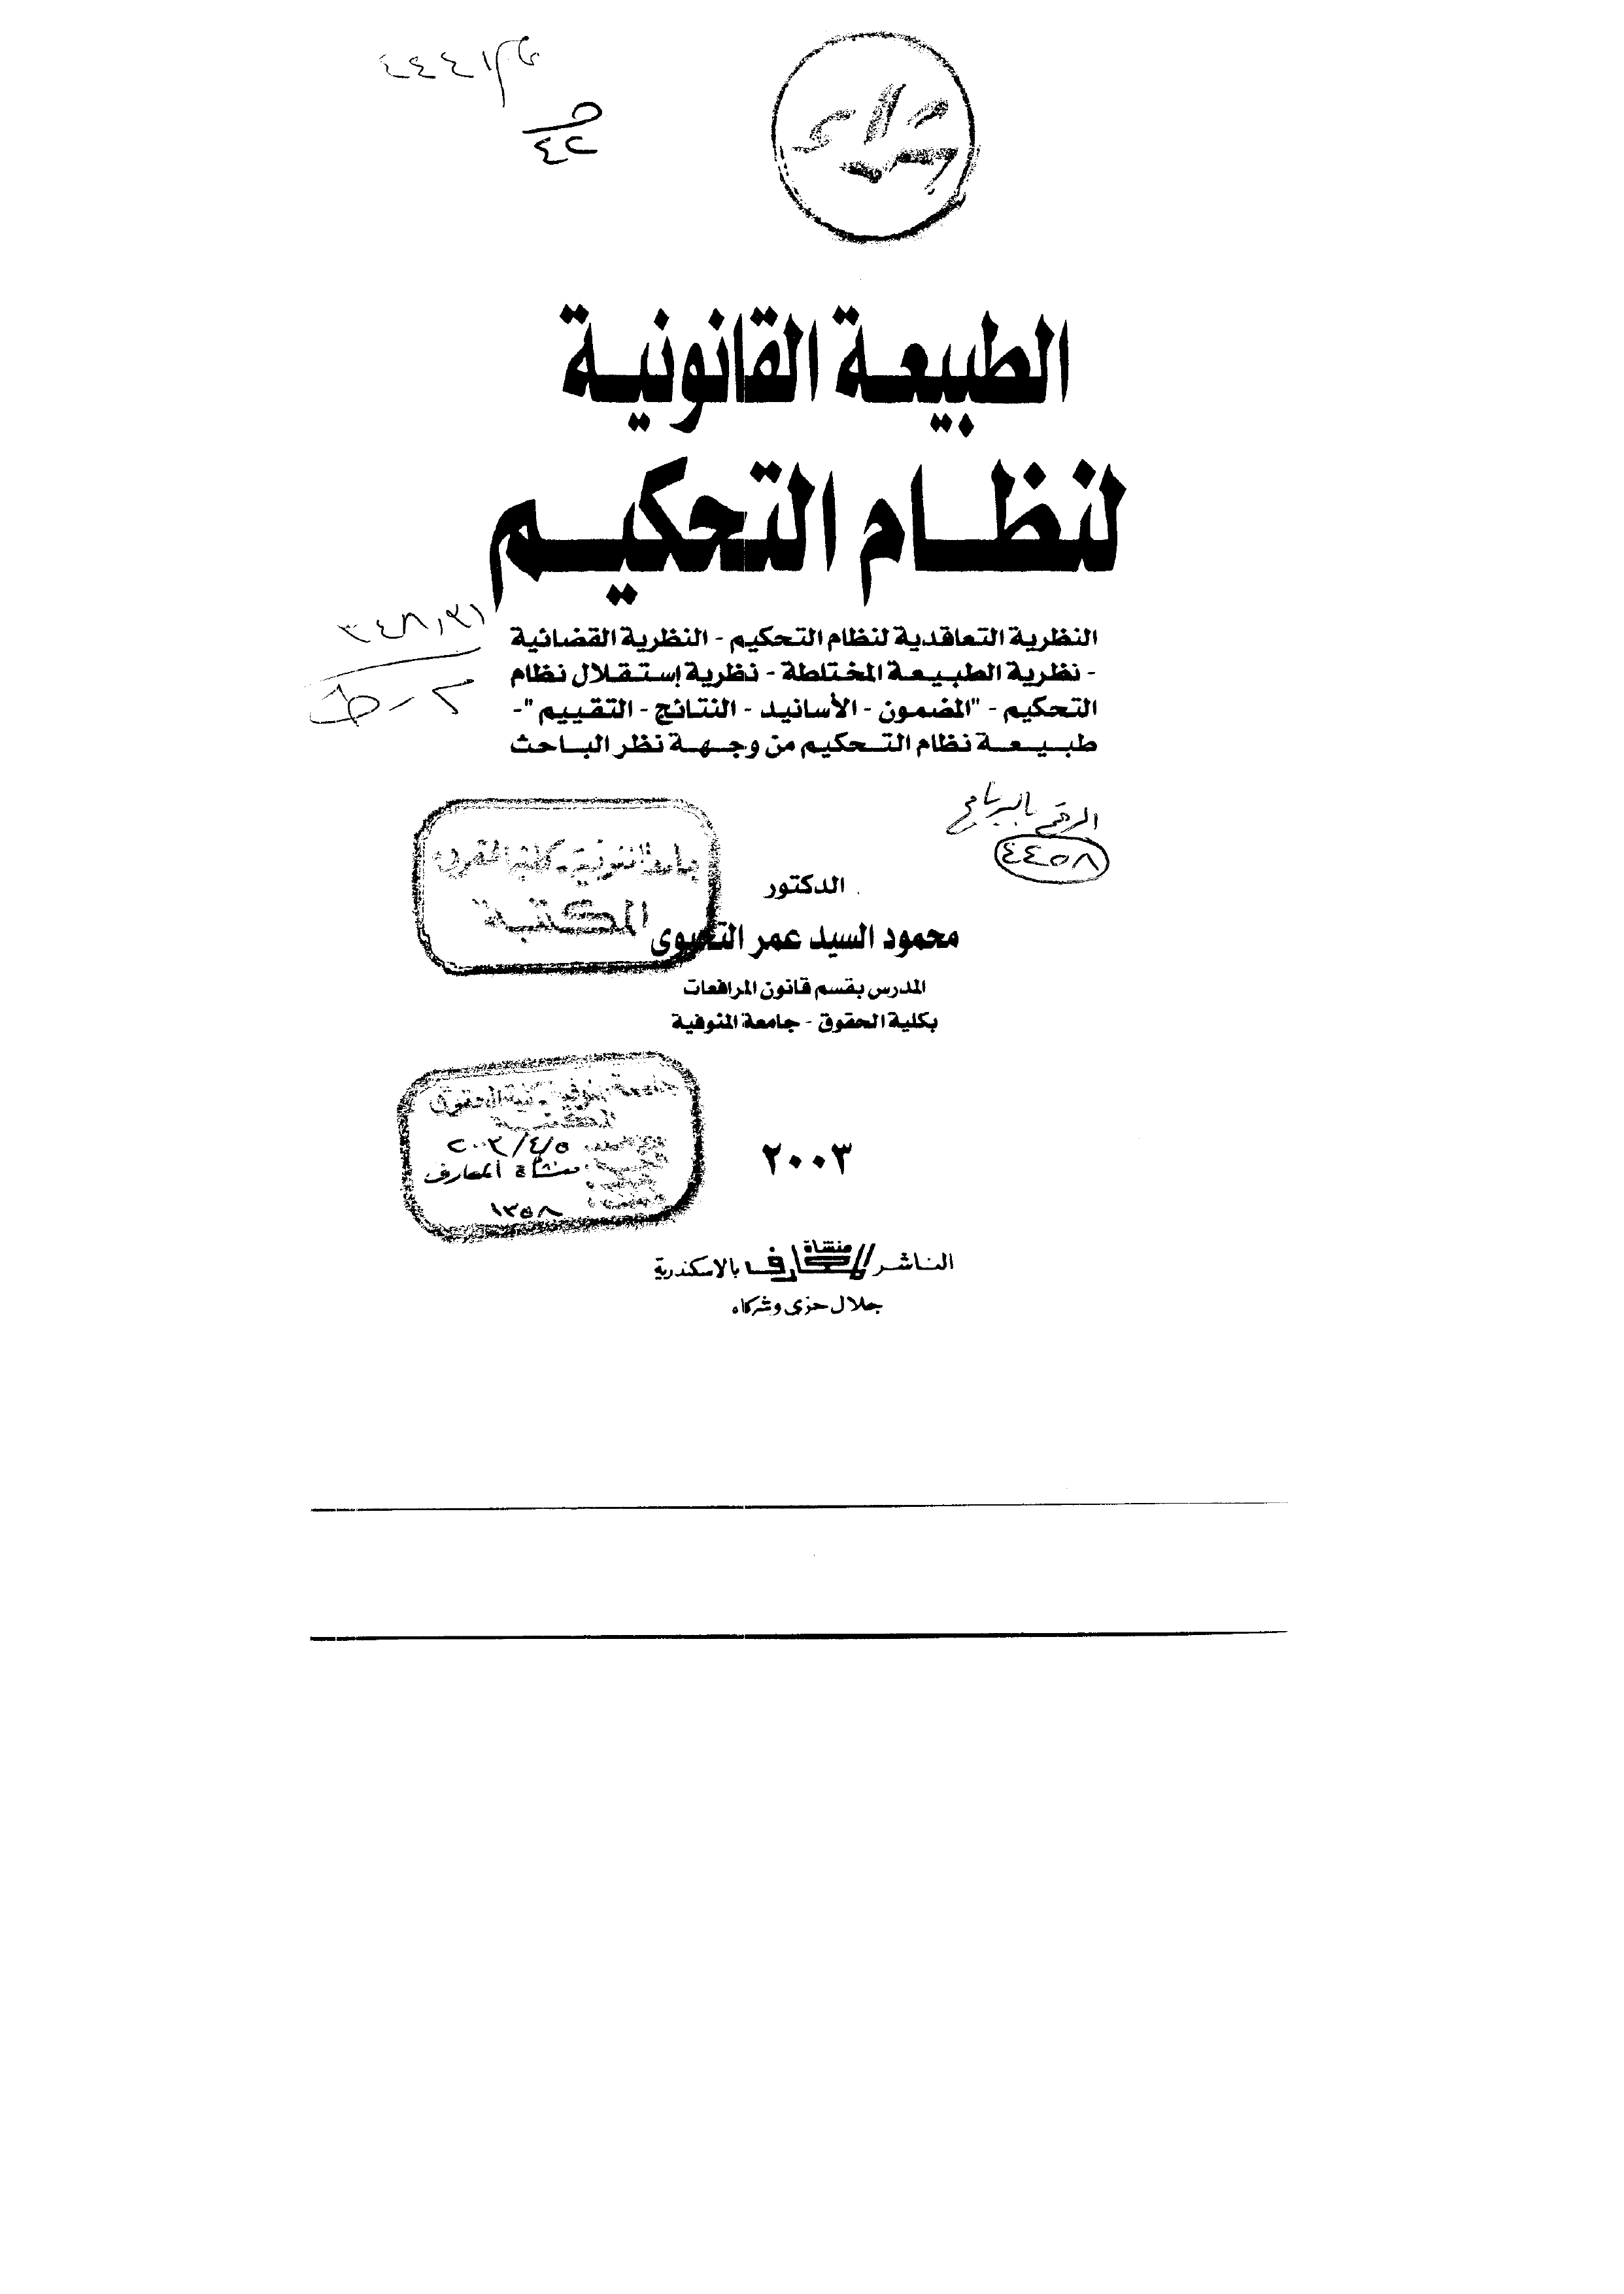 ٤٤٤١
ح
٤٢
الطبيعة القانونية
لنظام التحكيم
٣٤٨٫٣١
النظرية التعاقدية لنظام التحكيم - النظرية القضائية
- نظرية الطبيعة المختلطة - نظرية إستقلال نظام
التحكيم - "المضمون - الأسانيد - النتائج - التقييم"-
طبيعة نظام التحكيم من وجهة نظر الباحث
الرقم بالبرنامج
٤٤٥٨
جامعة المنوفية - كلية الحقوق
المكتبة
الدكتور
محمود السيد عمر التحيوى
المدرس بقسم قانون المرافعات
بكلية الحقوق - جامعة المنوفية
جامعة المنوفية - كلية الحقوق
المكتبة
٢٠٠٣/٤/٥
منشأة المعارف
١٣٥٨
٢٠٠٣
الناشر منشاة المعارف بالاسكندرية
جلال حزى وشركاه